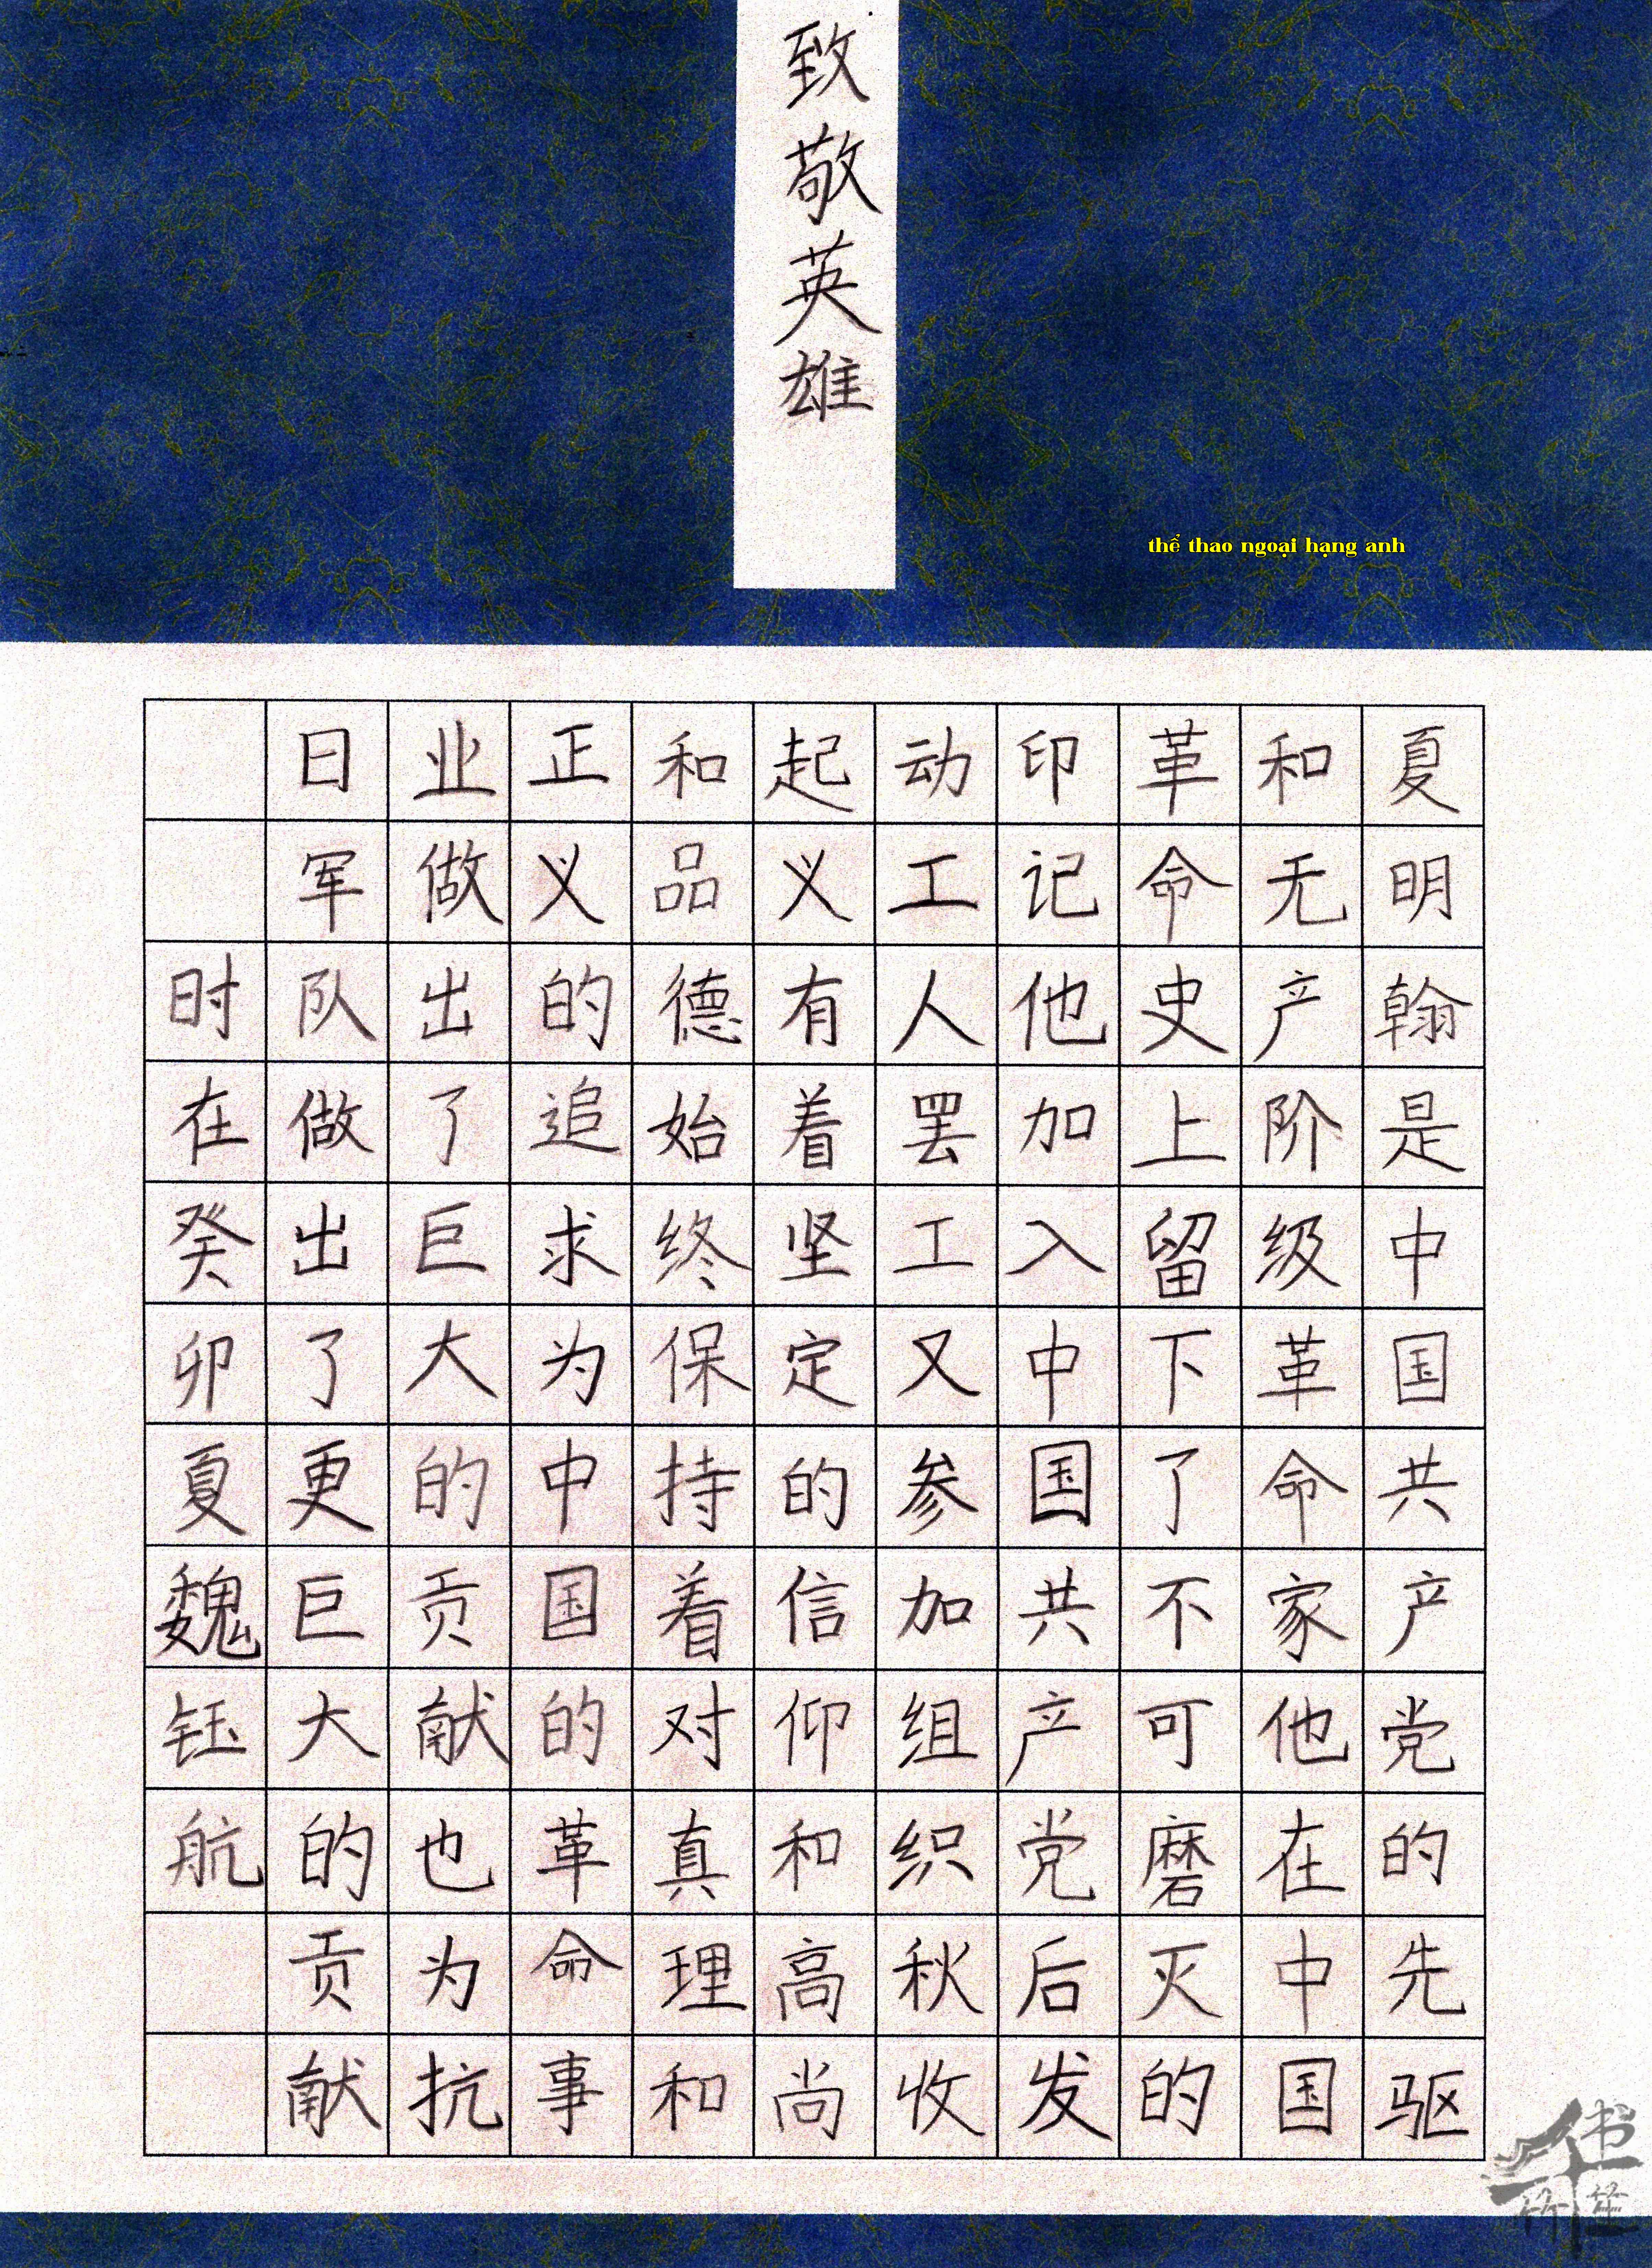 致敬英雄
thể thao ngoại hạng anh
夏明翰是中国共产党的先驱
和无产阶级革命家他在中国
革命史上留下了不可磨灭的
印记他加入中国共产党后发
动工人罢工又参加组织秋收
起义有着坚定的信仰和高尚
和品德始终保持着对真理和
正义的追求为中国的革命事
业做出了巨大的贡献也为抗
日军队做出了更巨大的贡献
时在癸卯夏魏钰航